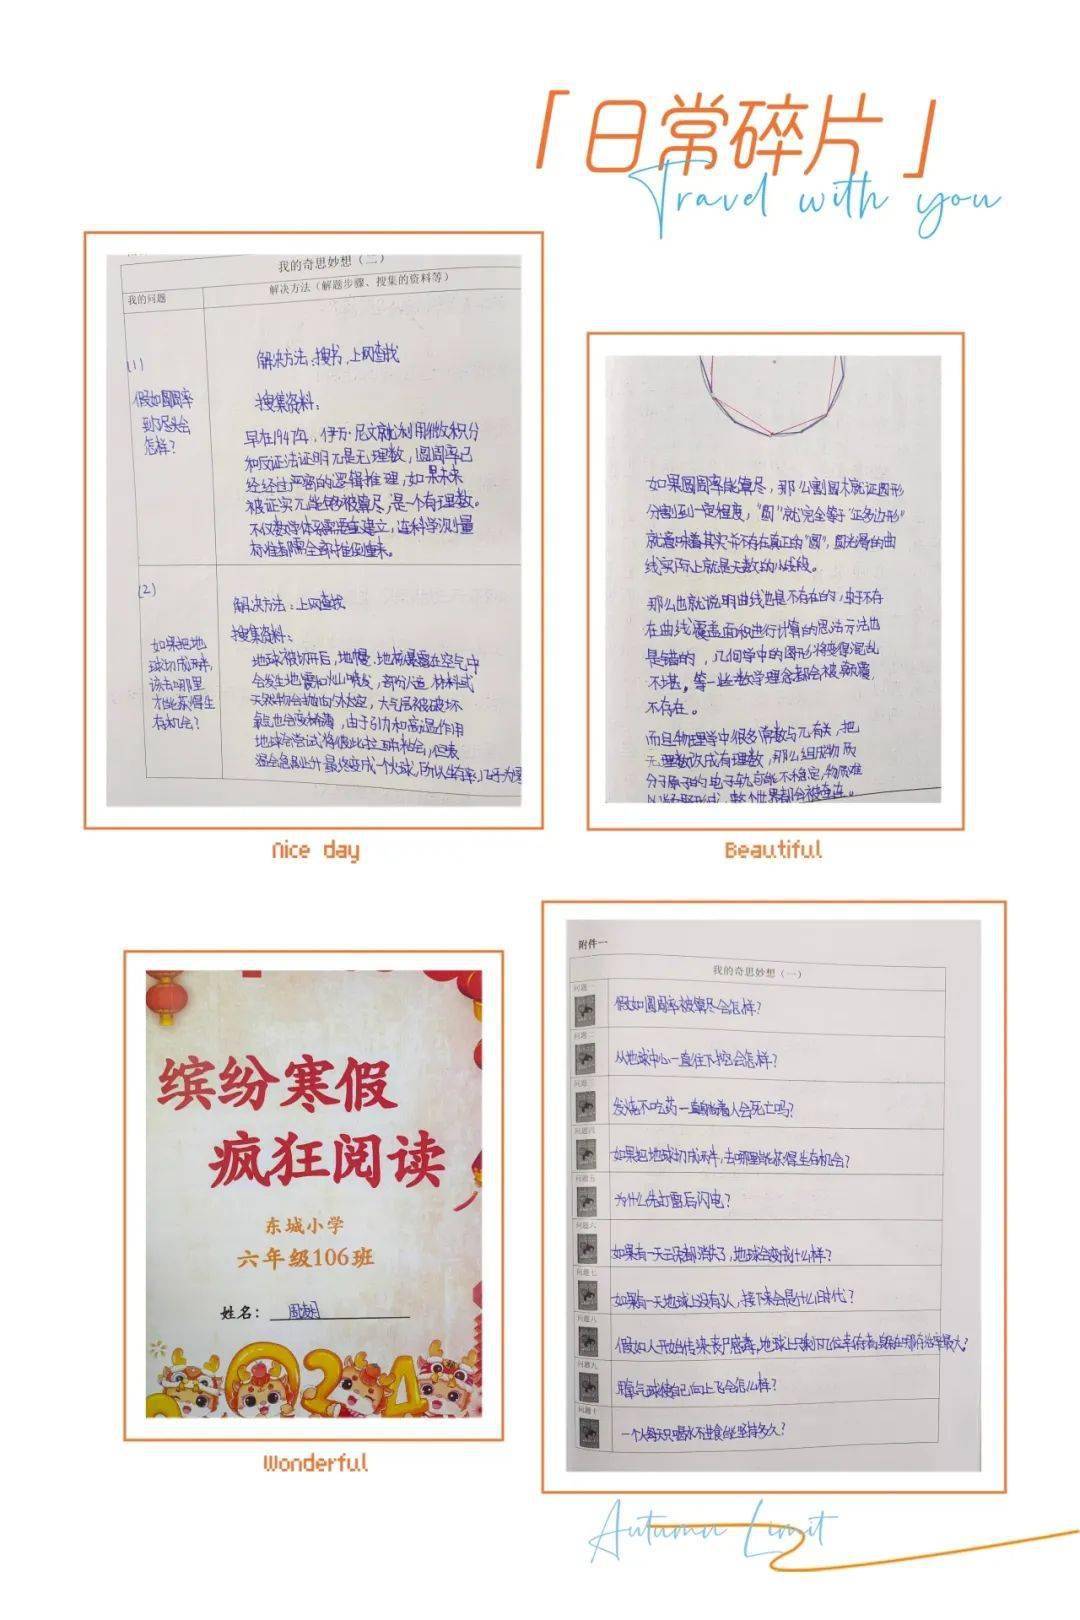 「日常碎片」
Travel with you
我的奇思妙想（二）
我的问题
解决方法（解题步骤、搜集的资料等）
(1)
假如圆周率
到了尽头会
怎样？
解决方法：搜书、上网查找
搜集资料：
早在1947年，伊万·尼文就利用微积分
和反证法证明π是无理数，圆周率已
经经过严密的逻辑推理，如果未来
被证实π能够被算尽，是一个有理数。
不仅数学体系需要重建立，连科学测量
标准都需全部推倒重来。
(2)
如果把地
球切成两半，
该去哪里
才能获得生
存机会？
解决方法：上网查找
搜集资料：
地球被切开后，地幔、地核暴露在空气中
会发生地震和火山喷发，部分人造材料或
天然物会抛向外太空，大气层被破坏
氧气也会变稀薄，由于引力和高温作用
地球会尝试将彼此拉回来粘合，但表
最终变成一个火球，所以生存率几乎为零
Nice day
如果圆周率能算尽，那么割圆术就证圆形
分割到一定程度，“圆”就完全等于“正多边形”
就意味着其实并不存在真正的“圆”，圆光滑的曲
线实际上就是无数的小线段。
那么也就说明曲线也是不存在的，由于不存
在曲线，覆盖面积进行计算的思法方法也
是错的，几何学中的图形将变得混乱
不堪。等一些数学理念都会被颠覆，
不存在。
而且物理学中很多常数与π有关，把
无理数改成有理数，那么组成物质
分子原子的电子轨道能不稳定，物质难
Beautiful
缤纷寒假
疯狂阅读
东城小学
六年级106班
姓名：
2024
Wonderful
附件一
我的奇思妙想（一）
问题一
假如圆周率被算尽会怎样？
问题二
从地球中心一直往下挖会怎样？
问题三
发烧不吃药一直躺着人会死亡吗？
问题四
如果把地球切成两半，去哪里能获得生存机会？
问题五
为什么先打雷后闪电？
问题六
如果有一天云朵都消失了，地球会变成什么样？
问题七
如果有一天地球上没有了人，接下来会是什么时代？
问题八
假如人开始传染丧尸病毒，地球上只剩下几位幸存者，
问题九
用氢气球使自己向上飞会怎么样？
问题十
一个人每天只喝水不进食能坚持多久？
Autumn Limit